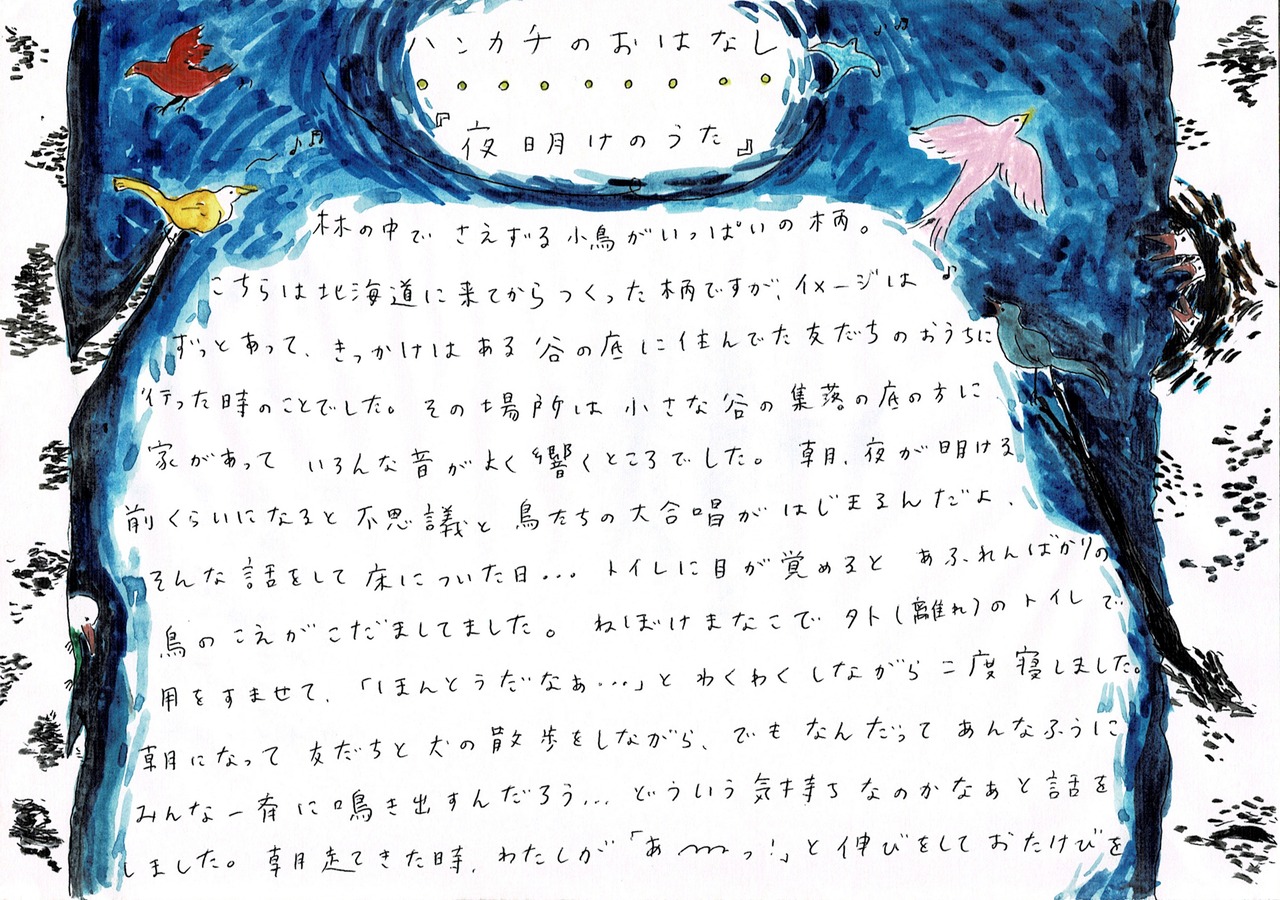 ハンカチのおはなし
『夜明けのうた』
林の中で さえずる小鳥がいっぱいの柄。
こちらは北海道に来てからつくった柄ですが、イメージは
ずっとあって、きっかけは ある谷の底に住んでた友だちのおうちに
行った時のことでした。その場所は小さな谷の集落の底の方に
家があって いろんな音がよく響くところでした。朝、夜が明ける
前くらいになると不思議と鳥たちの大合唱がはじまるんだよ、
そんな話をして床についた日... トイレに目が覚めると あふれんばかりの
鳥のこえがこだましてました。ねぼけまなこで 外(離れ)のトイレで
用をすませて、「ほんとうだなぁ...」と わくわくしながら二度寝しました。
朝になって 友だちと犬の散歩をしながら、でもなんだって あんなふうに
みんな一斉に鳴き出すんだろう... どういう気持ちなのかなぁと話を
しました。朝起てきた時、わたしが「あ〜〜っ!」と伸びをしておたけびを